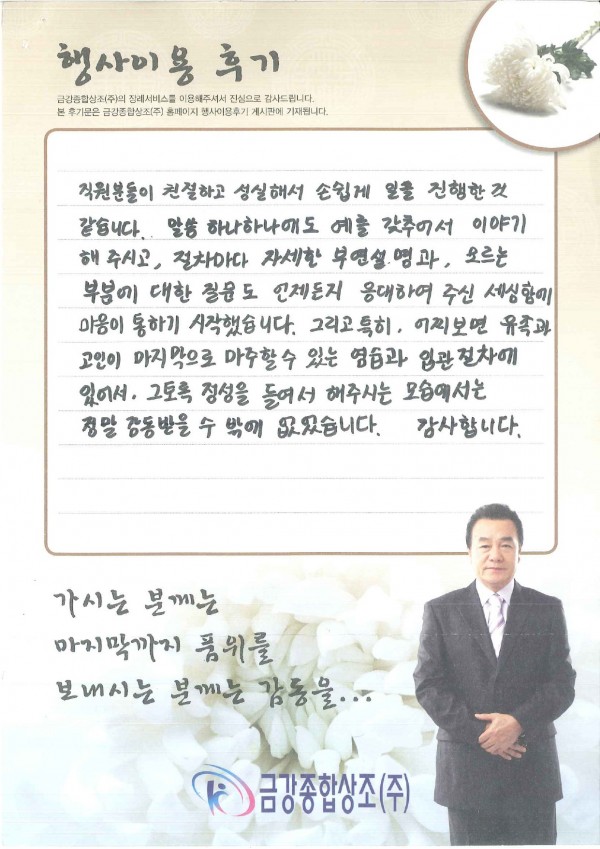 행사이용 후기
금강종합상조(주)의 장례서비스를 이용해주셔서 진심으로 감사드립니다.
본 후기문은 금강종합상조(주) 홈페이지 행사이용후기 게시판에 기재됩니다.
직원분들이 친절하고 성실해서 손쉽게 일을 진행한 것
같습니다. 말씀 하나하나에도 예를 갖추어서 이야기
해 주시고, 절차마다 자세한 부연설명과, 모르는
부분에 대한 질문도 언제든지 응대하여 주신 세심함에
마음이 통하기 시작했습니다. 그리고 특히, 어찌보면 유족과
고인이 마지막으로 마주할 수 있는 염습과 입관 절차에
있어서, 그토록 정성을 들여서 해주시는 모습에서는
정말 감동받을 수 밖에 없었습니다. 감사합니다.
가시는 분께는
마지막까지 품위를
보내시는 분께는 감동을...
금강종합상조(주)